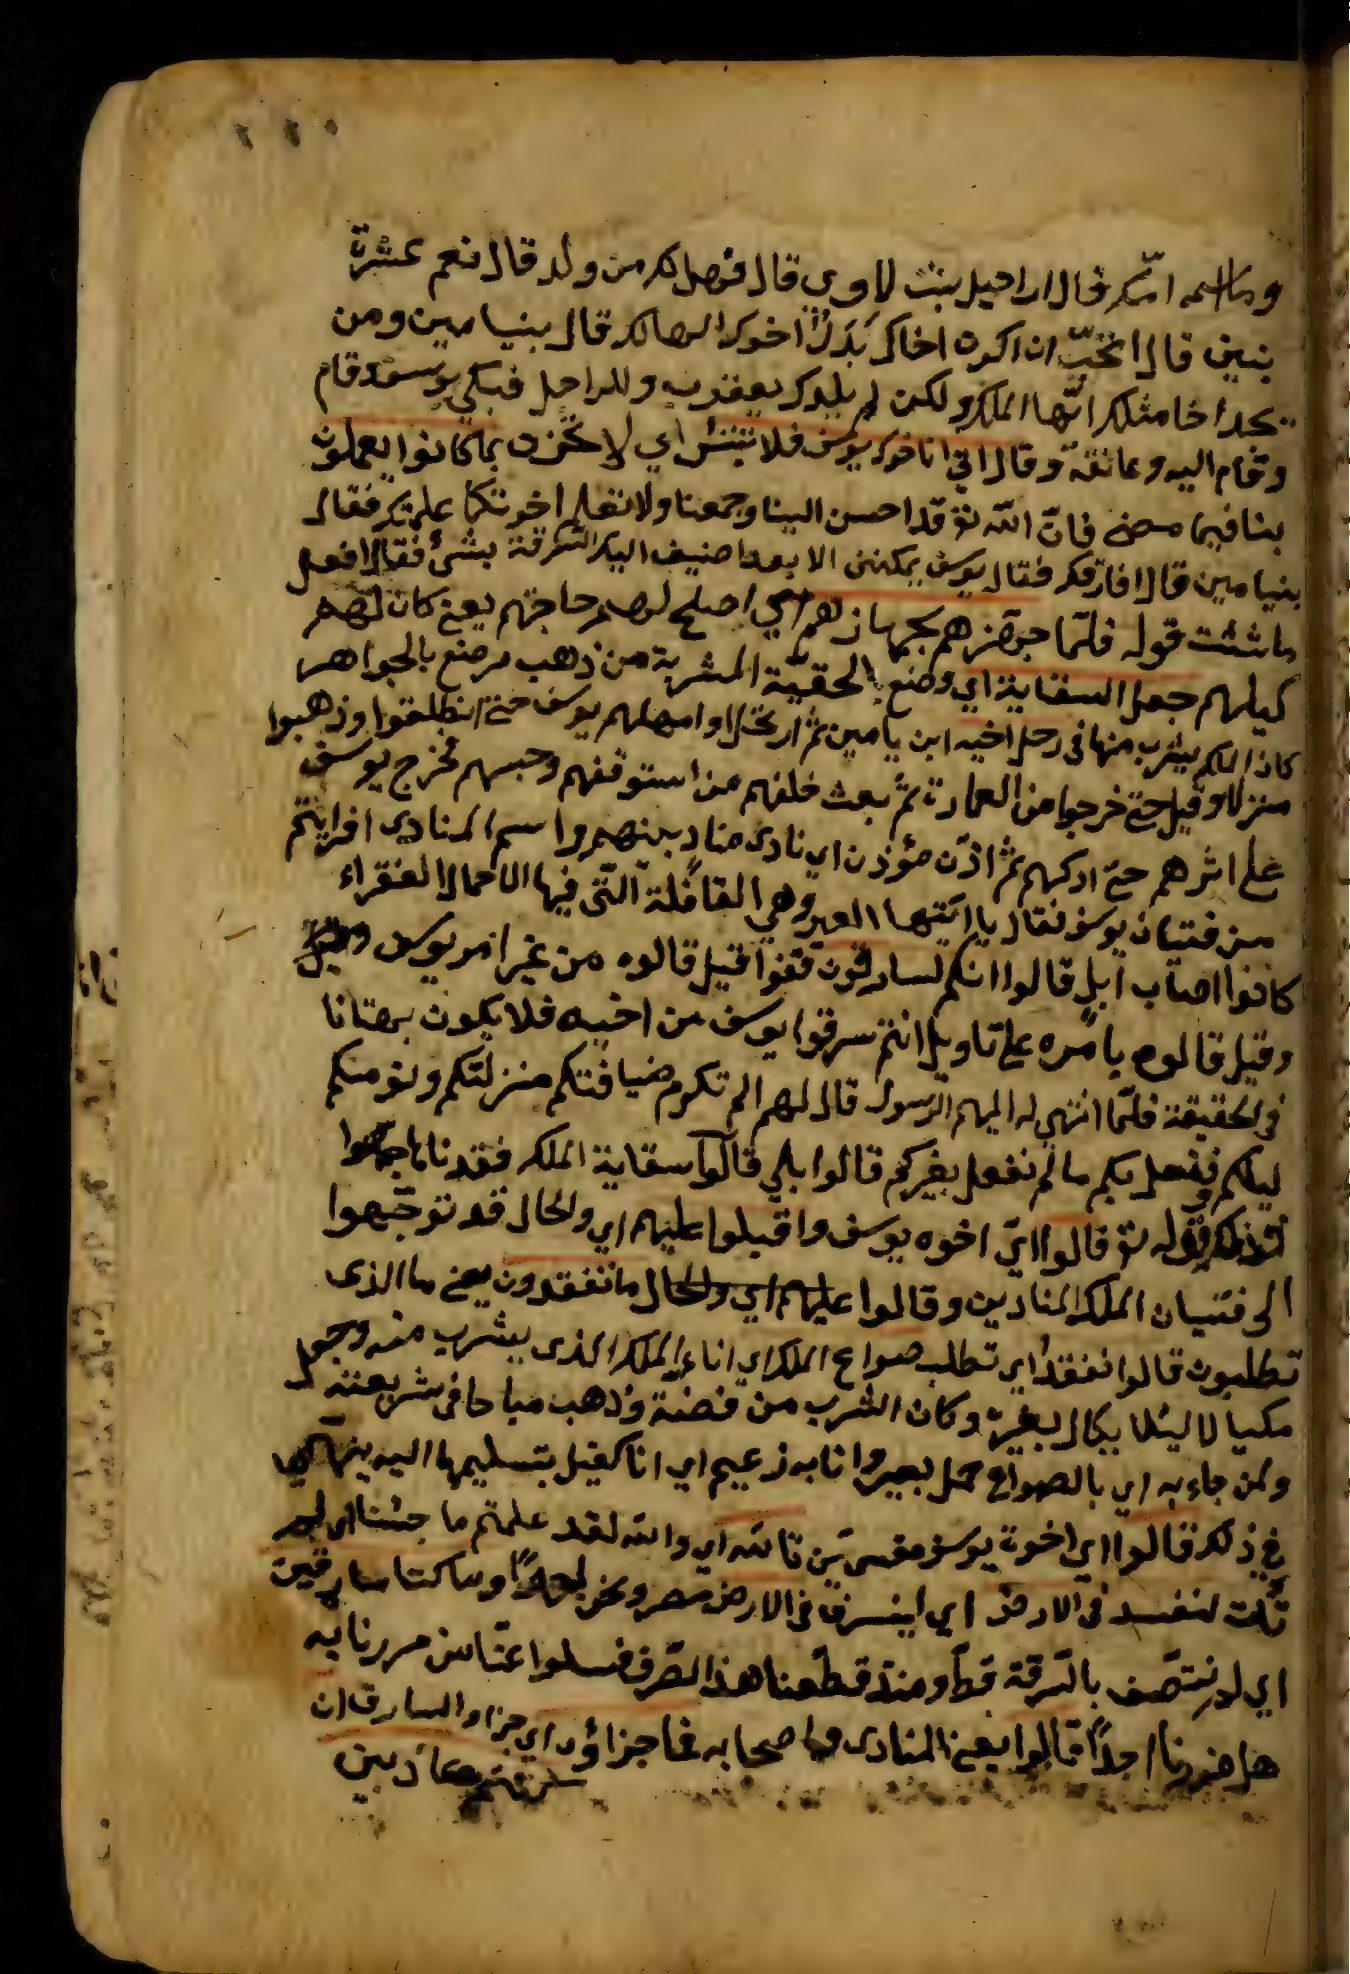 وما اسم امك قال راحيل بنت لاوى قال فهل لك من ولد قال نعم عشرة
بنين قال اتحب ان اكون اخاك بدل اخوك الهالك قال بنيامين ومن
يجد اخا مثلك ايها الملك ولكن لم يلدك يعقوب ولا راحيل فبكى يوسف وقام
وقام اليه وعانقه وقال انى انا اخوك يوسف فلا تبتئس اي لا تحزن بما كانوا يعملون
بنا فيما مضى فان الله تع قد احسن الينا وجمعنا ولا تعلم اخوتكا علمتك فقال
بنيامين قال لا افارقك فقال يوسف يمكننى الا بعد اضيف اليك السرقة بشئ فقال افعل
ما شئت قوله فلما جهزهم بجهازهم اي اصلح لهم حاجتهم يعنى كان لهم
كيلهم جعل السقاية اي وضع الحقيّة المشربة من ذهب مرصع بالجواهر
كان الملك يشرب منها فى رحل اخيه ابن يامين ثم ارتحلوا وامهلهم يوسف حتى انطلقوا وذهبوا
منزلا وقيل حتى خرجوا من العمارة ثم بعث خلفهم من استوقفهم وحبسهم فخرج يوسف
على اثرهم حتى ادركهم ثم اذن مؤذن اي نادى مناد بينهم واسم المنادى افرايتم
من فتيان يوسف فقال يا ايتها العير وهي القافلة التى فيها الاحمال الفقراء
كانوا اصحاب ابل قالوا انكم لسارقون قفوا قيل قالوه من غير امر يوسف
وقيل قالوه بامره على تاويل انتم سرقوا يوسف من اخيه فلا يكون بهتانا
فى الحقيقة فلما انتهى له اليهم الرسول قال لهم الم تكرم ضيافتكم منزلتكم ونومنكم
ليلكم ونفعل بكم ما لم نفعل بغيركم قالوا بلى قالوا سقاية الملك فقدناها
فذلك قوله تع قالوا اي اخوه يوسف واقبلوا عليهم اي والحال قد توجهوا
الى فتيان الملك المنادين وقالوا عليهم اي والحال ما تفقدون يعنى ما الذى
تطلبون قالوا نفقد اي تطلب صواع الملك اي اناء الملك الذى يشرب منه وجعل
مكيالا لئلا يكال بغيره وكان الشرب من فضة وذهب مباحا فى شريعته
ولمن جاء به اي بالصواع حمل بعير وانا به زعيم اي انا كفيل بتسليمها اليه
فى ذلك قالوا اي اخوة يوسف مقسمين تالله اي والله لقد علمتم ما جئنا اي
لنفسد فى الارض اي لنسرق فى الارض مصر ونحن وما كنا سارقين
اي لا نتصف بالسرقة قط ومنذ قطعنا هذا الطرف فسلوا عنا من مررنا به
هل ضررنا احدًا قالوا يعنى المنادى واصحابه فما جزاؤه اي جزاء السارق ان
كنتم كاذبين